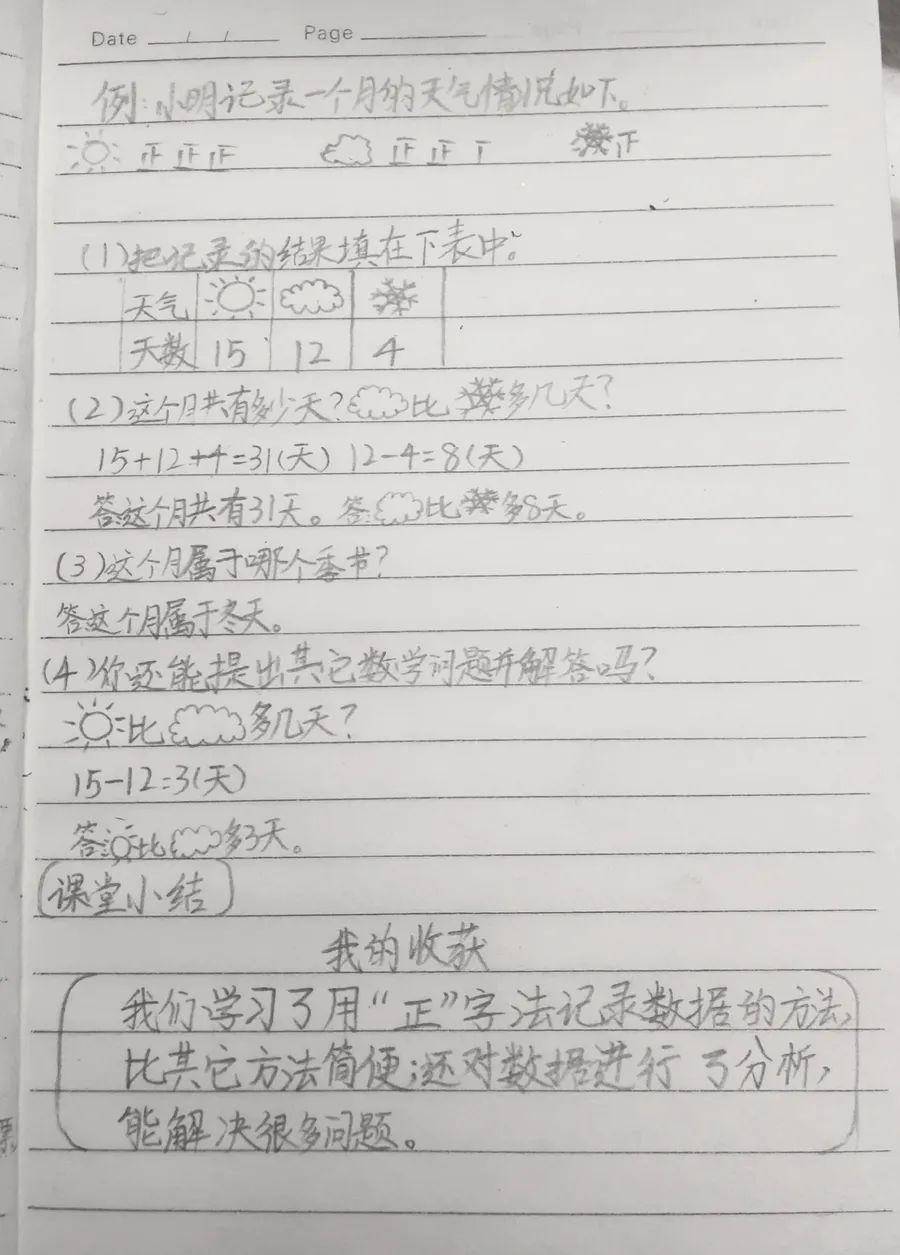 Date / / Page
例:小明记录一个月的天气情况如下。
正正正 正正丅 正
(1)把记录的结果填在下表中。
天气
天数 15 12 4
(2)这个月共有多少天? 比 多几天?
15+12+4=31(天) 12-4=8(天)
答:这个月共有31天。答: 比 多8天。
(3)这个月属于哪个季节?
答:这个月属于冬天。
(4)你还能提出其它数学问题并解答吗?
比 多几天?
15-12=3(天)
答: 比 多3天。
课堂小结
我的收获
我们学习了用“正”字法记录数据的方法,
比其它方法简便;还对数据进行了分析,
能解决很多问题。